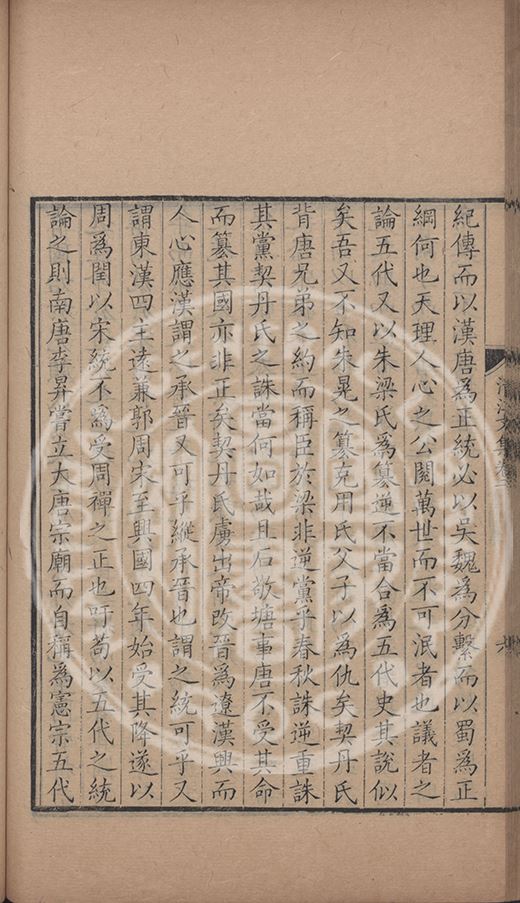 紀傳而以漢唐為正統必以吳魏為分繫而以蜀為正
綱何也天理人心之公閱萬世而不可泯者也議者之
論五代又以朱梁氏為篡逆不當合為五代史其說似
矣吾又不知朱晃之篡克用氏父子以為仇矣契丹氏
背唐兄弟之約而稱臣於梁非逆黨乎春秋誅逆重誅
其黨契丹氏之誅當何如哉且石敬塘事唐不受其命
而篡其國亦非正矣契丹氏虜出帝改晉為遼漢興而
人心應漢謂之承晉又可乎縱承晉也謂之統可乎又
謂東漢四主遠兼郭周宋至興國四年始受其降遂以
周為閏以宋統不為受周禪之正也吁苟以五代之統
論之則南唐李昪嘗立大唐宗廟而自稱為憲宗五代